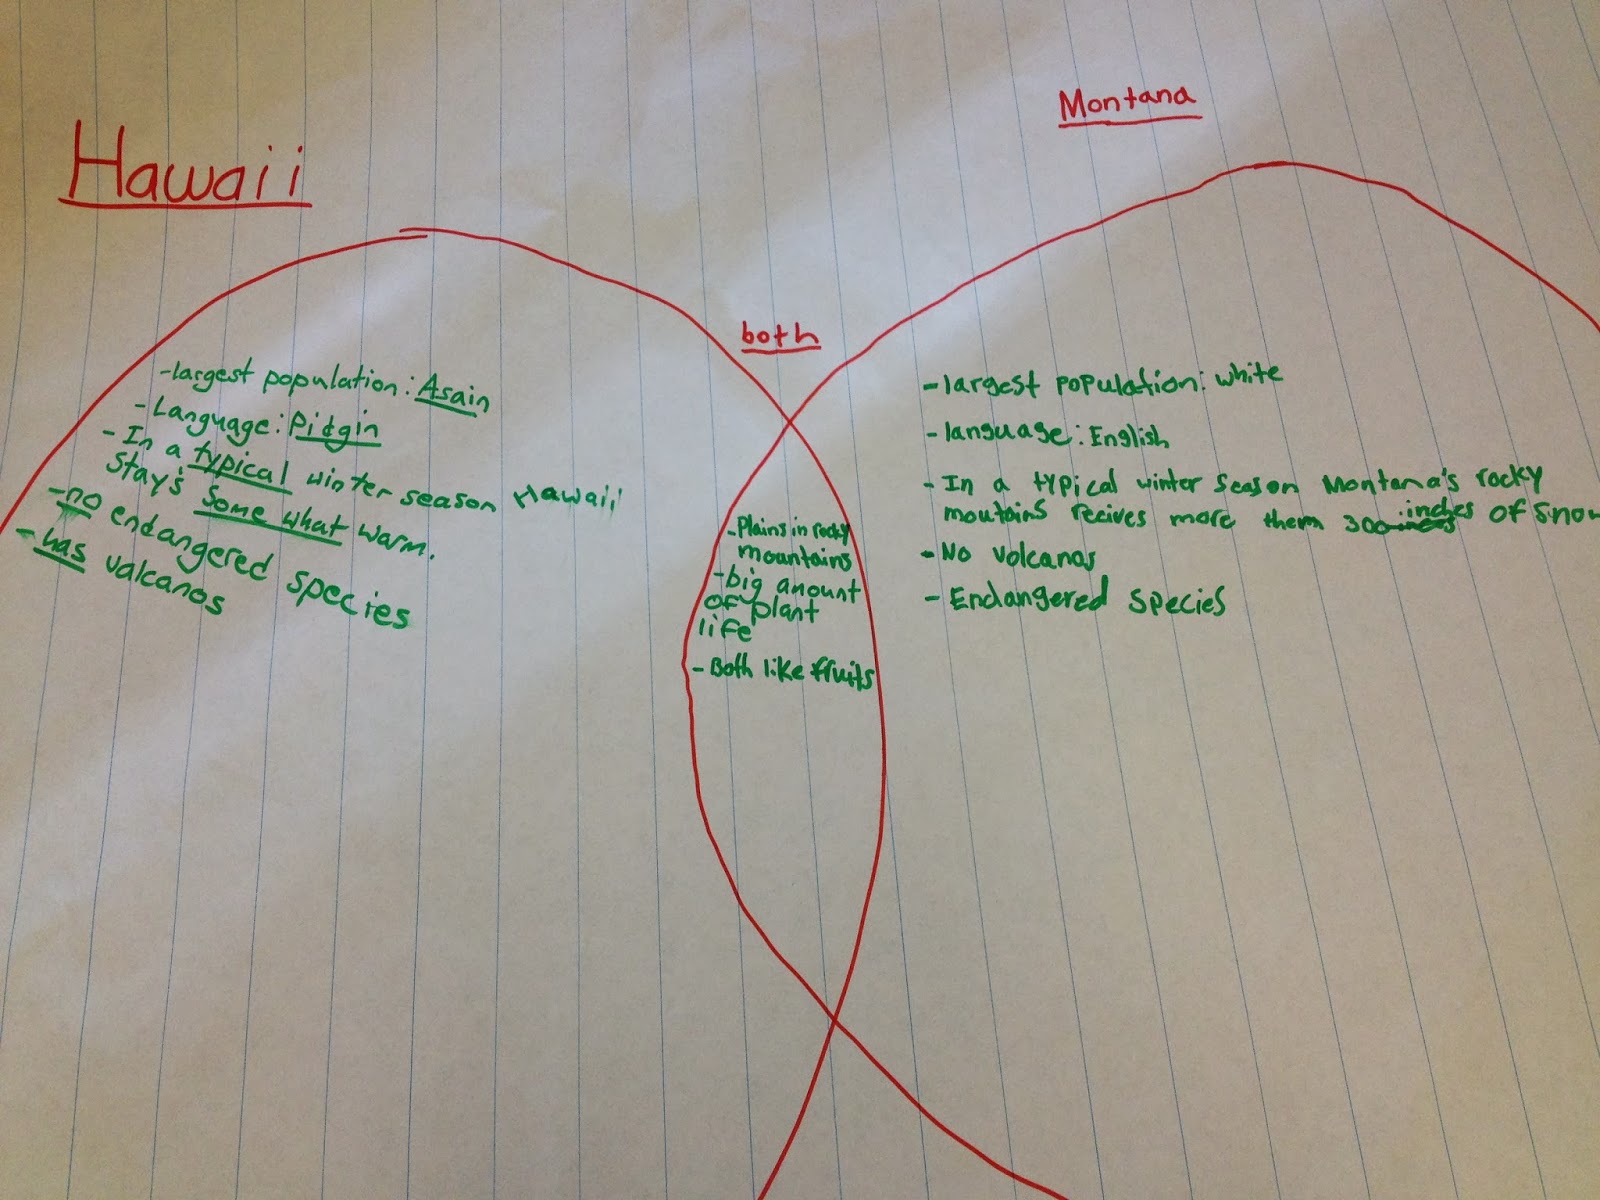 Hawaii
-largest population: Asain
-Language: Pidgin
-In a typical winter season Hawaii
Stay's Some what warm.
-no endangered species
-has valcanos
both
-Plains in rocky
mountains
-big anount
of plant
life
-Both like ffruits
Montana
-largest population: white
-language: English
-In a typical winter season Montana's rocky
moutains recives more them 300 inches of snow
-No volcanos
-Endangered species